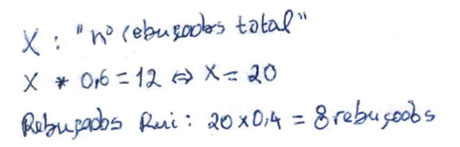 X : "nº rebuçados total"
X * 0,6 = 12 ⇔ X = 20
Rebuçados Rui : 20 x 0,4 = 8 rebuçados